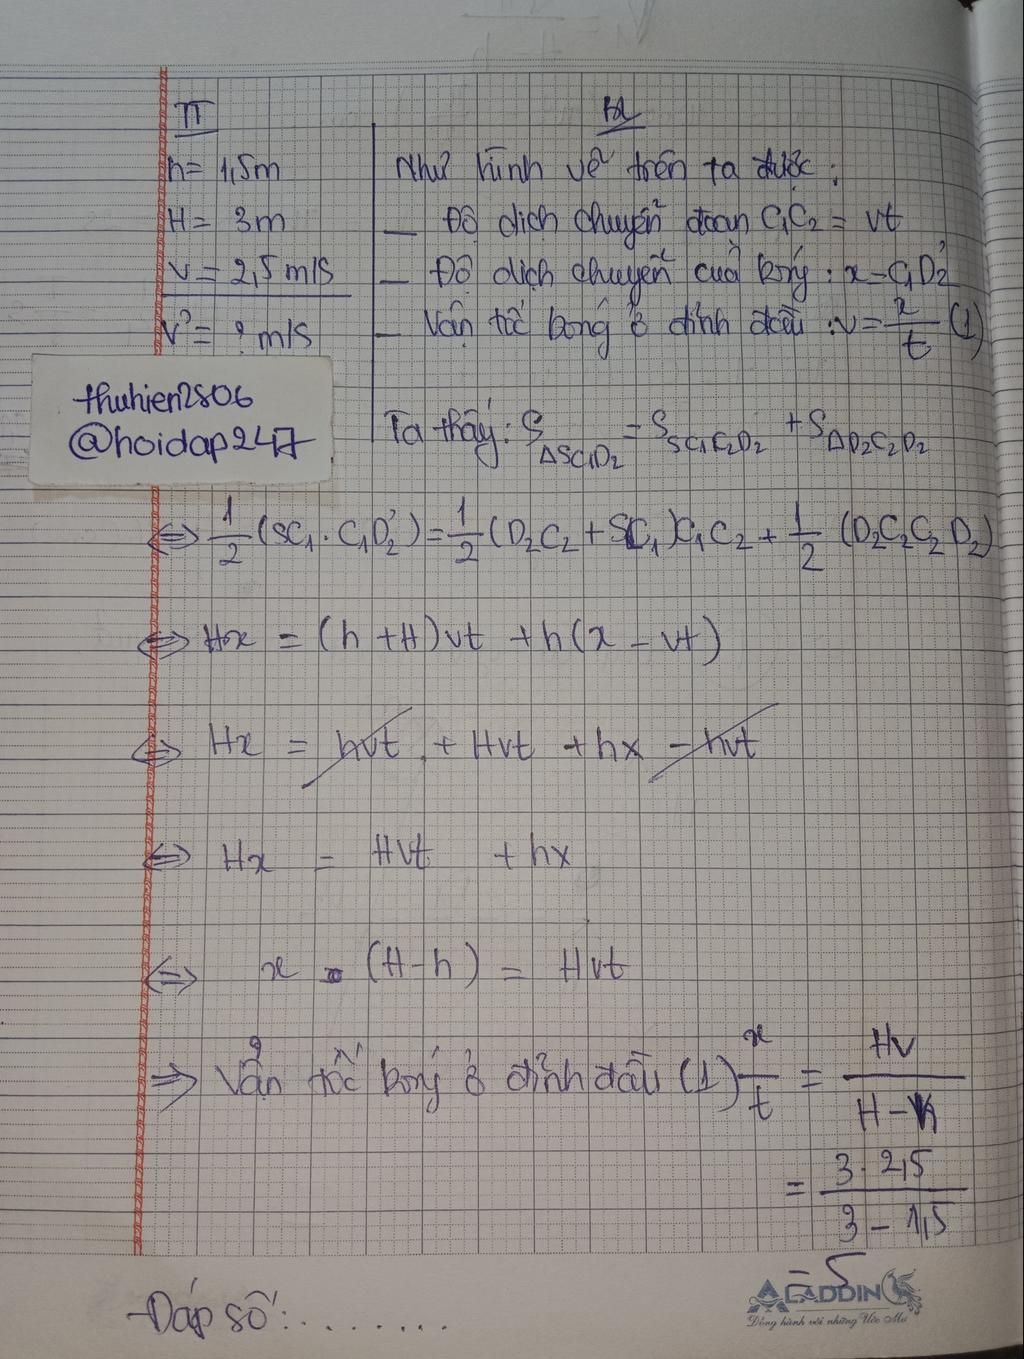 TT
h = 1,5m
H = 3m
v = 2,5 m/s
V' = ? m/s
thuhien2806
@hoidap247
Như hình vẽ trên ta được:
– Độ dịch chuyển đoạn C₁C₂ = vt
– Độ dịch chuyển của bóng: x = C₁D₂'
– Vận tốc bóng ở đỉnh đầu: v = x/t (1)
Ta thấy: S ΔSC₁D₂ = S SC₁C₂D₂ + S ΔD₂C₂D₂
⇔ 1/2 (SC₁ . C₁D₂') = 1/2 (D₂C₂ + SC₁)C₁C₂ + 1/2 (D₂C₂C₂D₂)
⇔ Hx = (h + H)vt + h(x – vt)
⇔ Hx = hvt + Hvt + hx – hvt
⇔ Hx = Hvt + hx
⇔ x (H – h) = Hvt
⇒ Vận tốc bóng ở đỉnh đầu (1) x/t = Hv/(H – h)
= 3 . 2,5/(3 – 1,5)
= 5
Đáp số: ........
ACADDIN
Đồng hành với những Ước Mơ